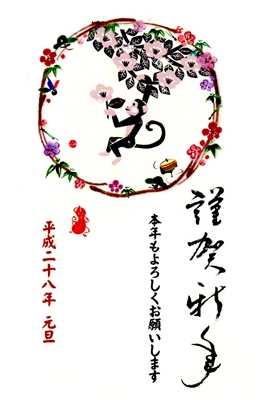 謹賀新年
本年もよろしくお願いします
平成二十八年 元旦